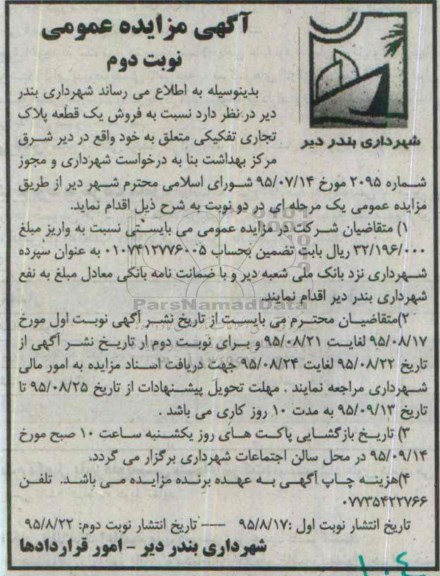 آگهی مزایده عمومی
نوبت دوم
شهرداری بندر دیر
بدینوسیله به اطلاع می رساند شهرداری بندر
دیر در نظر دارد نسبت به فروش یک قطعه پلاک
تجاری تفکیکی متعلق به خود واقع در دیر شرق
مرکز بهداشت بنا به درخواست شهرداری و مجوز
شماره ۲۰۹۵ مورخ ۹۵/۰۷/۱۴ شورای اسلامی محترم شهر دیر از طریق
مزایده عمومی یک مرحله ای در دو نوبت به شرح ذیل اقدام نماید.
۱) متقاضیان شرکت در مزایده عمومی می بایستی نسبت به واریز مبلغ
۳۲/۱۹۶/۰۰۰ ریال بابت تضمین بحساب ۰۱۰۷۴۱۲۷۷۶۰۰۵ به عنوان سپرده
شهرداری نزد بانک ملی شعبه دیر و با ضمانت نامه بانکی معادل مبلغ به نفع
شهرداری بندر دیر اقدام نمایند.
ParsNamadData
۲)متقاضیان محترم می بایست از تاریخ نشر آگهی نوبت اول مورخ
۹۵/۰۸/۱۷ لغایت ۹۵/۰۸/۲۱ و برای نوبت دوم از تاریخ نشر آگهی از
تاریخ ۹۵/۰۸/۲۲ لغایت ۹۵/۰۸/۲۴ جهت دریافت اسناد مزایده به امور مالی
شهرداری مراجعه نمایند . مهلت تحویل پیشنهادات از تاریخ ۹۵/۰۸/۲۵ تا
تاریخ ۹۵/۰۹/۱۳ به مدت ۱۰ روز کاری می باشد .
۳) تاریخ بازگشایی پاکت های روز یکشنبه ساعت ۱۰ صبح مورخ
۹۵/۰۹/۱۴ در محل سالن اجتماعات شهرداری برگزار می گردد.
۴)هزینه چاپ آگهی به عهده برنده مزایده می باشد. تلفن
۰۷۷۳۵۴۲۲۷۶۶
تاریخ انتشار نوبت اول :۹۵/۸/۱۷ ---- تاریخ انتشار نوبت دوم: ۹۵/۸/۲۲
شهرداری بندر دیر - امور قراردادها
۱۰۴